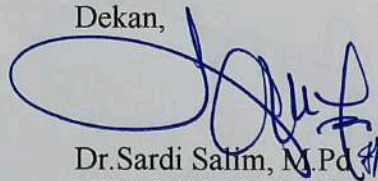 Dekan,
Dr.Sardi Salim, M.Pd